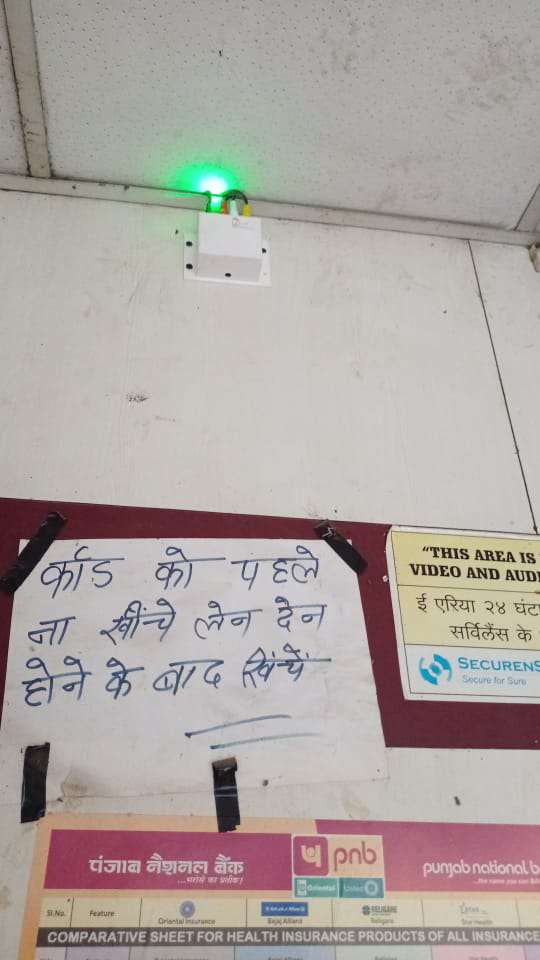 र्काड को पहले
ना खींचे लेन देन
होने के बाद खिंचें
"THIS AREA IS
VIDEO AND AUD
ई एरिया २४ घंटा
सर्विलैंस के
SECURENS
Secure for Sure
पंजाब नैशनल बैंक
...भरोसे का प्रतीक!
pnb
punjab national b
...the name you can B
Oriental
United
Sl.No. Feature Oriental Insurance Bajaj Allianz RELIGARE Religare Star Health
COMPARATIVE SHEET FOR HEALTH INSURANCE PRODUCTS OF ALL INSURANCE